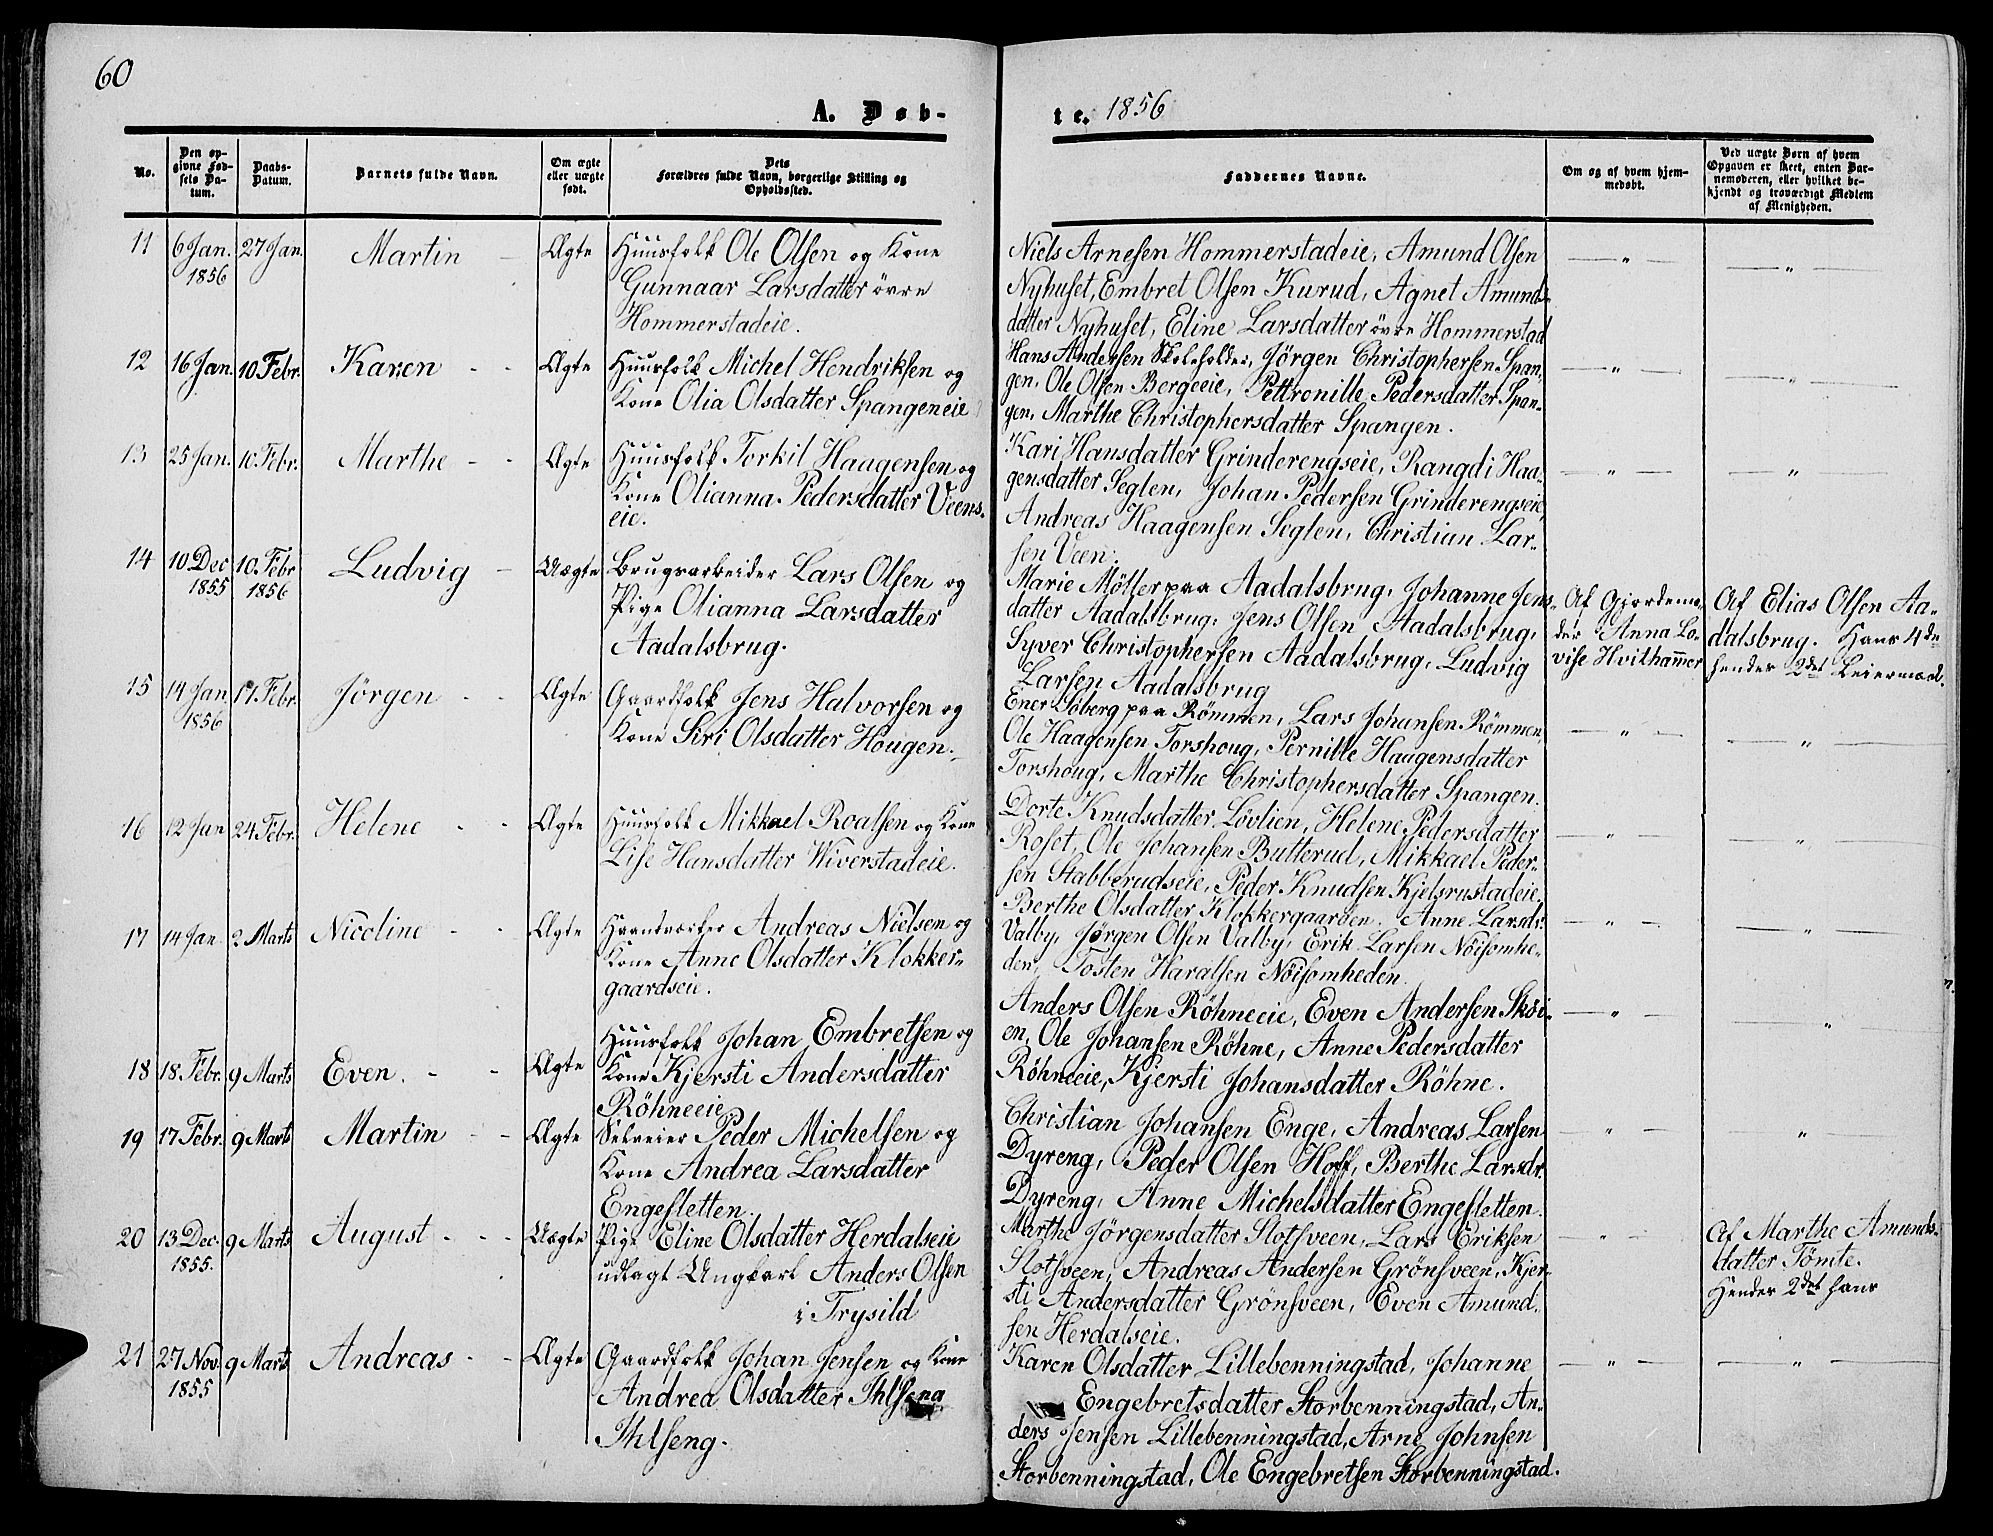 60
A. Døb-
te. 1856
No.
Den op-
givne Fød-
sels Da-
tum.
Daabs-
Datum.
Barnets fulde Navn.
Om ægte
eller uægte
født.
Dets
Forældres fulde Navn, borgerlige Stilling og
Opholdssted.
Faddernes Navne.
Om og af hvem hjem-
medøbt.
Ved uægte Børn af hvem
Opgaven er skeet, enten Bar-
nemoderen, eller hvilket be-
kjendt og troværdigt Medlem
af Menigheden.
11 6 Jan. 27 Jan. Martin Ægte Huusfolk Ole Olsen og Kone
1856 Gunnaar Larsdatter övre
Hommerstadeie.
Niels Arnesen Hommerstadeie, Amund Olsen
Nyhuset, Embret Olsen Kurud, Agnet Amunds-
datter Nyhuset, Eline Larsdatter övre Hommerstad
12 16 Jan. 10 Febr. Karen Ægte Huusfolk Michel Hendriksen og
Kone Olia Olsdatter Spangeneie
Hans Andersen Skoleholder, Jörgen Christophersen Span-
gen, Ole Olsen Bergeeie, Pettronille Pedersdatter Span-
gen, Marthe Christophersdatter Spangen.
13 25 Jan. 10 Febr. Marthe Ægte Huusfolk Torkil Haagensen og
Kone Olianna Pedersdatter Veens-
eie.
Kari Hansdatter Grinderengseie, Rangdi Haa-
gensdatter Seglen, Johan Pedersen Grinderengseie,
Andreas Haagensen Seglen, Christian Lar-
sen Veen.
14 10 Dec 10. Febr Ludvig Uægte Brugsarbeider Lars Olsen og
1855 1856 Pige Olianna Larsdatter
Aadalsbrug.
Marie Möller paa Aadalsbrug, Johanne Jens-
datter Aadalsbrug, Jens Olsen Aadalsbrug,
Syver Christophersen Aadalsbrug, Ludvig
Larsen Aadalsbrug
Af Gjordemo-
der Anna Lo-
vise Hvithammer
Af Elias Olsen Aa-
dalsbrug. Hans 4de
hendes 2det Leiermaal.
15 14 Jan 17 Febr. Jörgen Ægte Gaardfolk Jens Halvorsen og
1856 Kone Siri Olsdatter Hougen.
Ener Soberg paa Römmen, Lars Johansen Römmen,
Ole Haagensen Torshoug, Pernille Haagensdatter
Torshoug, Marthe Christophersdatter Spangen.
16 12 Jan 24 Febr. Helene Ægte Huusfolk Mikkael Roalsen og Kone
Lise Hansdatter Wiverstadeie.
Dorte Knudsdatter Lövlien, Helene Pedersdatter
Roset, Ole Johansen Butterud, Mikkael Peder-
sen Stabberudseie, Peder Knudsen Kjelsrustadeie.
17 14 Jan 2 Marts Nicoline Ægte Haandverker Andreas Nielsen og
Kone Anne Olsdatter Klokker-
gaardseie.
Berthe Olsdatter Klokkergaarden. Anne Larsdr.
Valby, Jörgen Olsen Valby, Erik Larsen Nöisomhe-
den, Tosten Haralsen Nöisomheden.
18 18 Febr. 9 Marts Even. Ægte Huusfolk Johan Embretsen og
Kone Kjersti Andersdatter
Röhneeie
Anders Olsen Röhneeie, Even Andersen Sköi-
en, Ole Johansen Röhne, Anne Pedersdatter
Röhneeie, Kjersti Johansdatter Röhne.
19 17 Febr. 9 Marts Martin Ægte Selveier Peder Michelsen og
Kone Andrea Larsdatter
Engesletten.
Christian Johansen Enge, Andreas Larsen
Dyreng, Peder Olsen Hoff, Berthe Larsdr.
Dyreng, Anne Michelsdatter Engesletten.
20 13 Dec. 9 Marts August Uægte Pige Eline Olsdatter Herdalseie
1855. udlagt Ungkarl Anders Olsen
i Trysild
Marthe Jörgensdatter Slotsveen, Lars Eriksen
Slotsveen, Andreas Andersen Grönsveen, Kjer-
sti Andersdatter Grönsveen, Even Amund-
sen Herdalseie.
Af Marthe Amunds-
datter Tömte.
Hendes 2det hans
21 27 Nov. 9 Marts Andreas Ægte Gaardfolk Johan Jensen og Kone
1855 Andrea Olsdatter Ihlseng
Ihlseng.
Karen Olsdatter Lillebenningstad, Johanne
Engebretsdatter Storbenningstad, An-
ders Jensen Lillebenningstad, Arne Johnsen
Storbenningstad, Ole Engebretsen Storbenningstad.